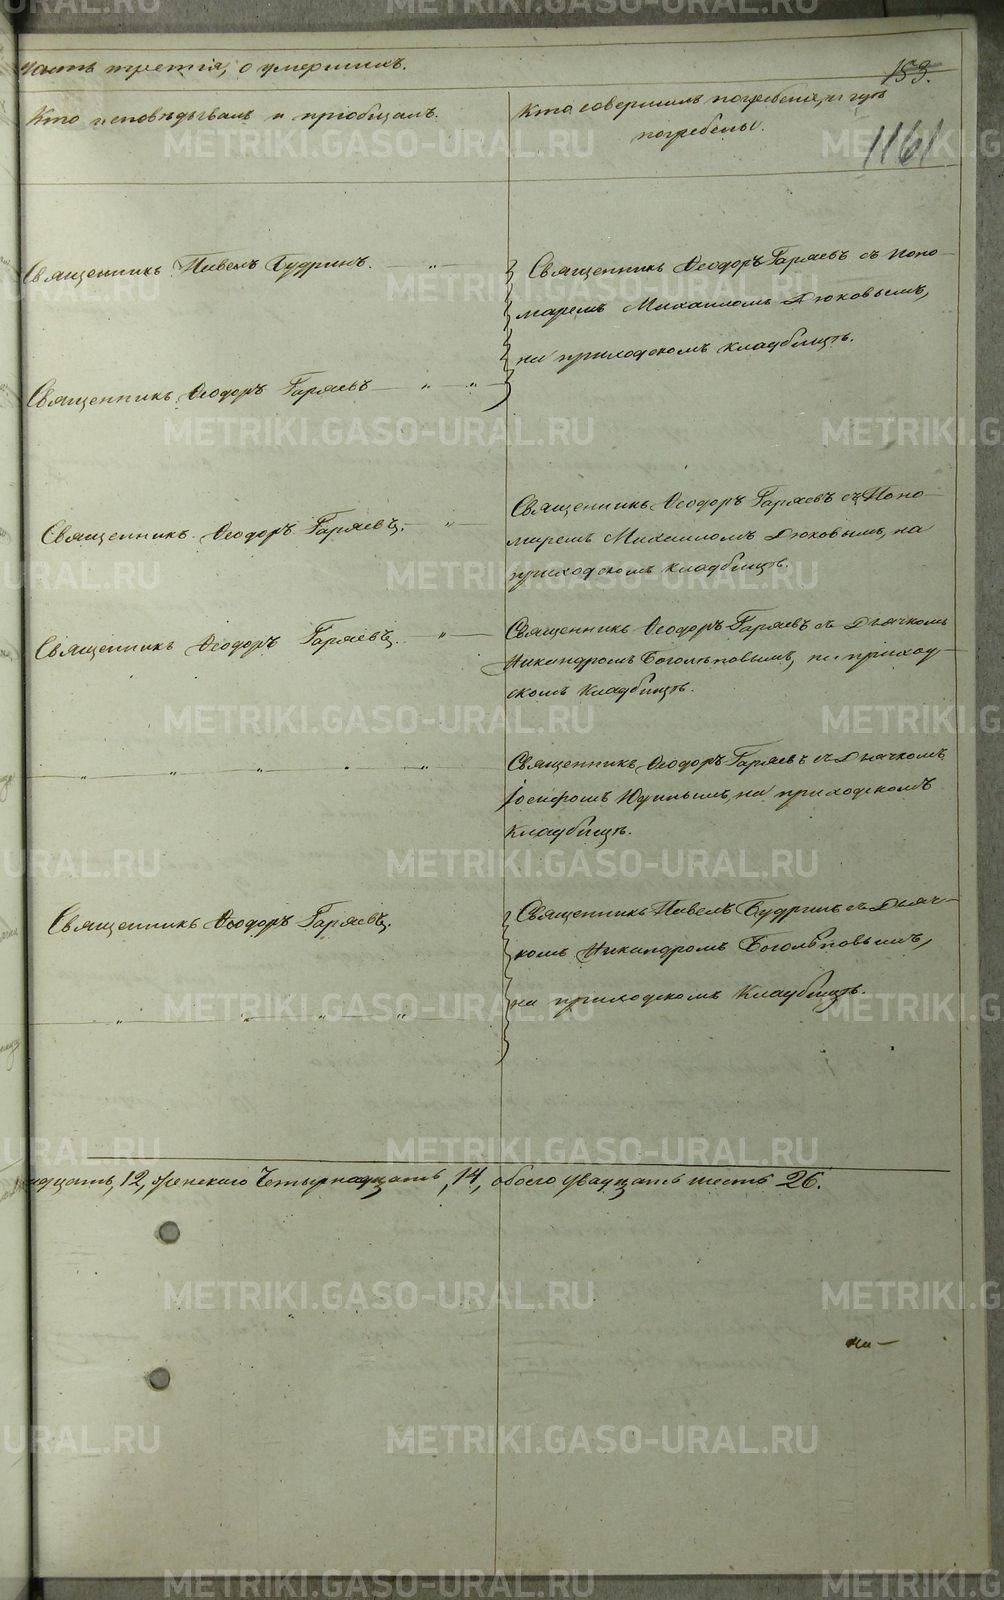 Часть третія, о умершихъ.
153.
Кто исповѣдывалъ и пріобщалъ.
Кто совершилъ погребеніе, и гдѣ
погребены.
1161
Священникъ Павелъ Будринъ. — „ —
Священникъ Ѳеодоръ Гаряевъ съ поно-
маремъ Михаиломъ Дюковымъ,
на приходскомъ кладбищѣ.
Священникъ Ѳеодоръ Гаряевъ — „ — „
Священникъ Ѳеодоръ Гаряевъ съ Поно-
маремъ Михаиломъ Дюковымъ, на
приходскомъ кладбищѣ.
Священникъ Ѳеодоръ Гаряевъ. — „ —
Священникъ Ѳеодоръ Гаряевъ съ Дьячкомъ
Никандромъ Боголѣповымъ, на приход-
скомъ Кладбищѣ.
Священникъ Ѳеодоръ Гаряевъ. „ —
Священникъ Ѳеодоръ Гаряевъ съ Дьячкомъ
Іосифомъ на приходскомъ
Кладбищѣ.
— „ — „ — „ — „ — „ —
Священникъ Ѳеодоръ Гаряевъ.
Священникъ Павелъ Будринъ съ Дьяч-
комъ Никандромъ Боголѣповымъ,
на приходскомъ Кладбищѣ.
— „ — „ — „ — „
надцать, 12, женскаго Четырнадцать, 14, обоего двадцать шесть 26.
на—
METRIKI.GASO-URAL.RU